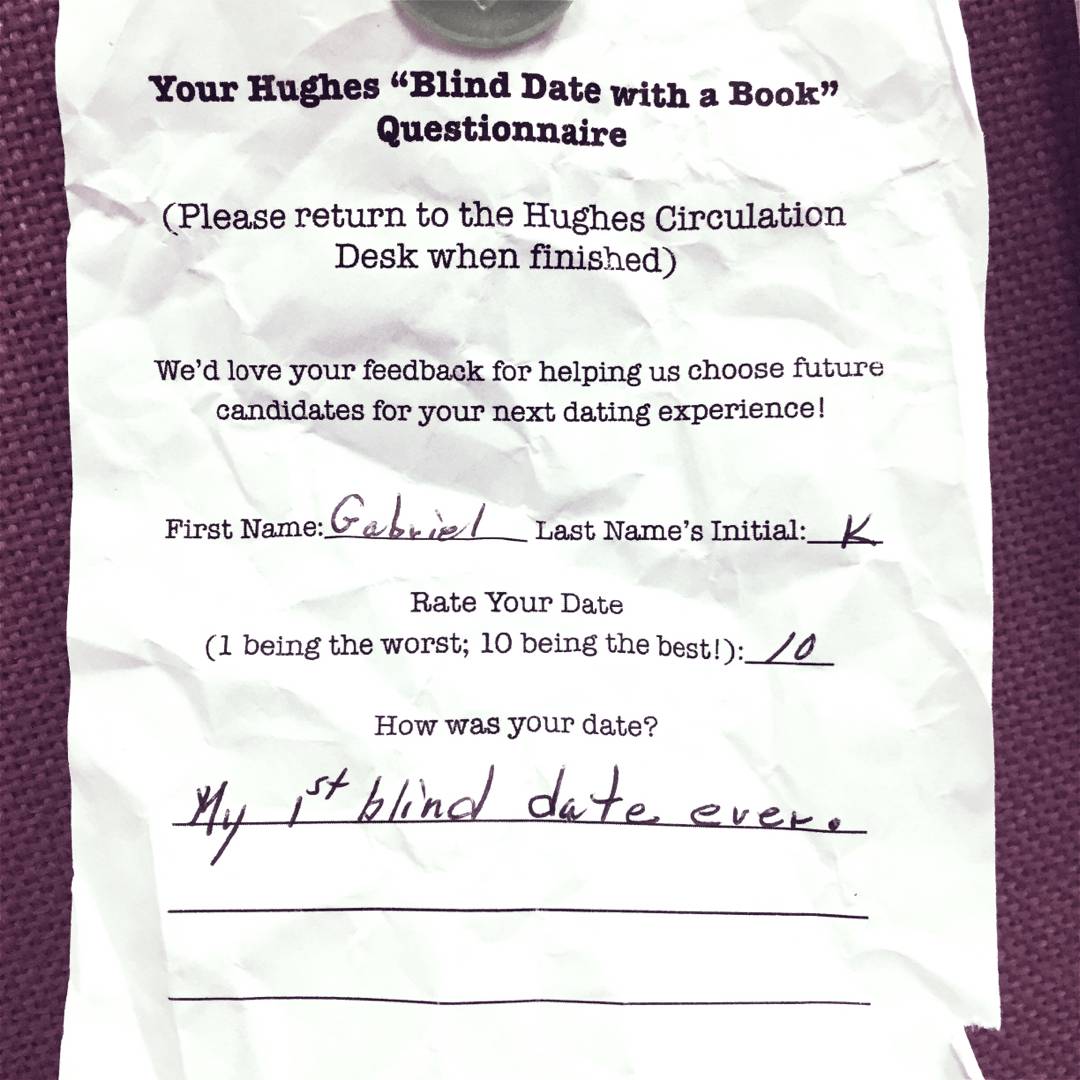 Your Hughes “Blind Date with a Book”
Questionnaire
(Please return to the Hughes Circulation
Desk when finished)
We’d love your feedback for helping us choose future
candidates for your next dating experience!
First Name: Gabriel Last Name’s Initial: K
Rate Your Date
(1 being the worst; 10 being the best!): 10
How was your date?
My 1st blind date ever.